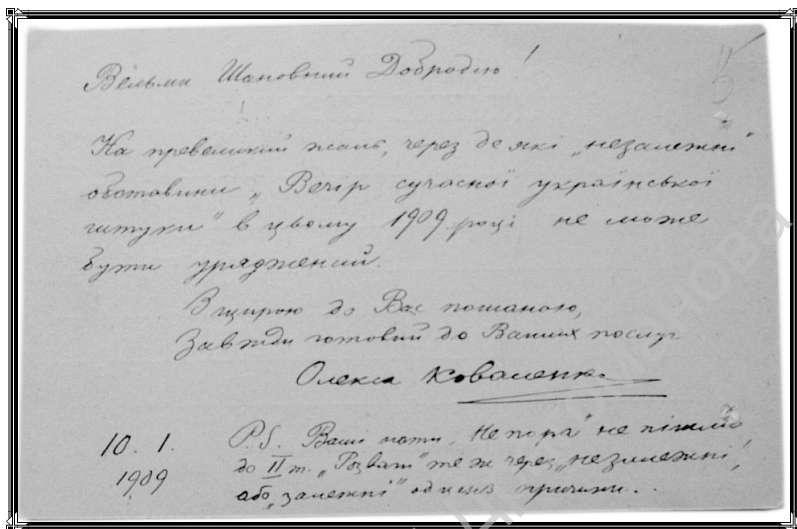 Вельми Шановний Добродію!
На превеликий жаль, через де які „незалежні"
обставини „Вечір сучасної української
штуки" в цьому 1909 році не може
бути уряджений.
З щирою до Вас пошаною,
Завжди готовий до Ваших послуг
Олекса Коваленко
10. 1.
1909
P.S. Ваші ноти „Не пора" не пішли
до II т. „Розваги" те ж через „незалежні",
або „залежні" од цензу причини..